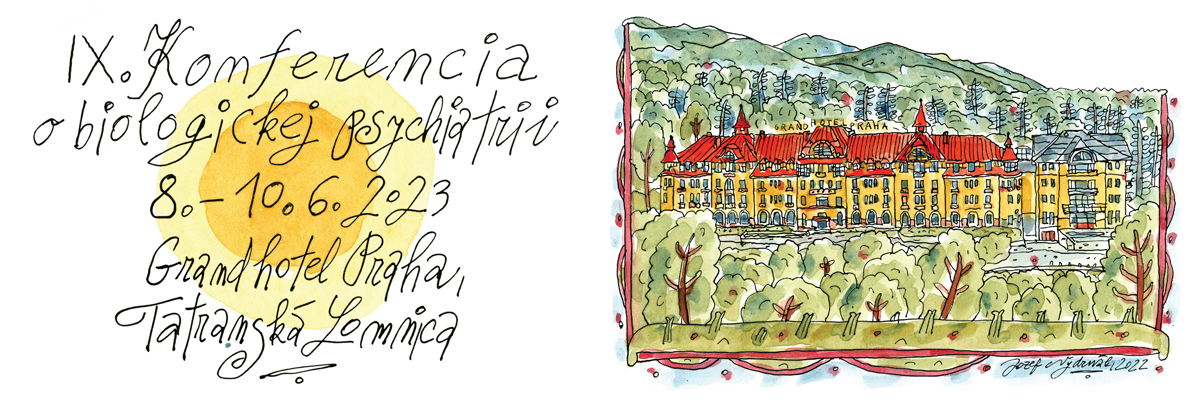 IX. Konferencia
o biologickej psychiatrii
8. – 10. 6. 2023
Grandhotel Praha,
Tatranská Lomnica
GRAND HOTEL PRAHA
Jozef 2022